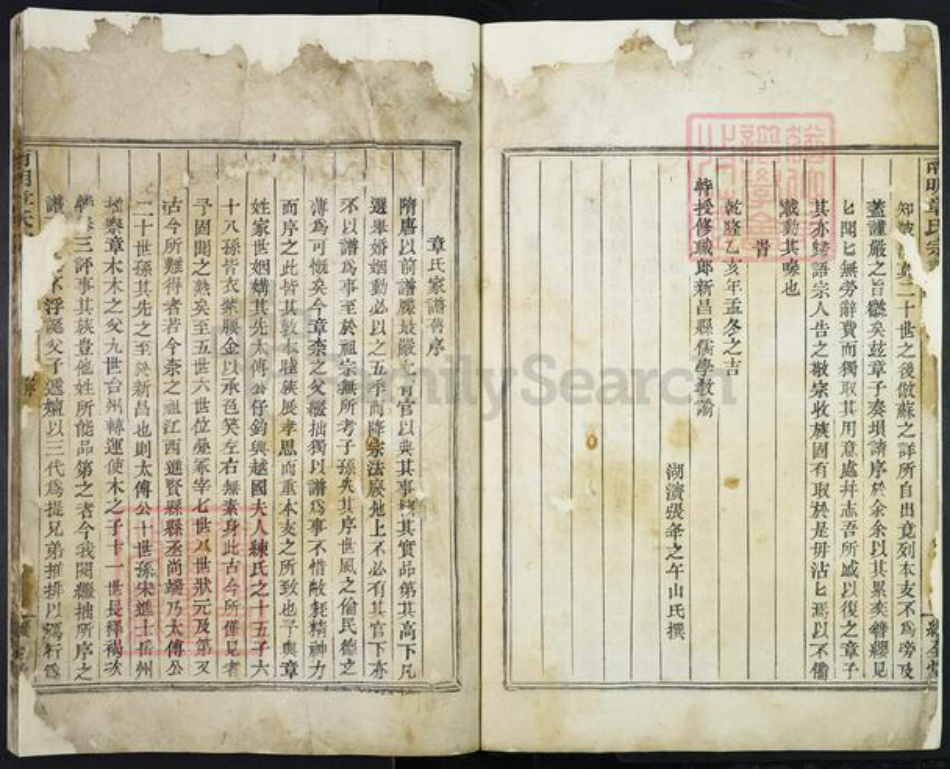 南明章氏宗
知
二十世之後倣蘇之詳所自出竟列本支不爲旁及
蓋謹嚴之旨歟矣玆章子奏塤請序於余余以其累奕簪纓見
匕聞匕無勞辭費而獨取其用意處幷志吾所感以復之章子
其亦歸語宗人告之敬宗收族固有取於是毋沾匕焉以不備
載動其喙也
旹
乾隆乙亥年孟冬之吉
特授修職郎新昌縣儒學教諭
湖濱張夆之午山氏撰
章氏家譜舊序
隋唐以前譜牒最嚴上有官以典其事覈其實品第其高下凡
選舉婚姻動必以之五季而降宗法廢弛上不必有其官下亦
不以譜爲事至於祖宗無所考子孫失其序世風之偷民德之
薄爲可慨矣今章柰之父繼拙獨以譜爲事不惜敝耗精神力
而序之此皆其敦本睦族展孝思而重本支之所致也予與章
姓家世姻媾其先太傅公仔鈞與越國夫人練氏之十五子六
十八孫皆衣紫腰金以承色笑左右無素身此古今所僅見者
予固聞之熟矣至五世六世位登冢宰七世八世狀元及第又
古今所難得者若今柰之祖江西進賢縣縣丞尚端乃太傅公
二十世孫其先之至於新昌也則太傅公十世孫宋進士岳州
察章木木之父九世台州轉運使木之子十一世長釋褐次
三評事其族豈他姓所能品第之者今我閱繼拙所序之
譜
不浮誕父子遞嬗以三代爲提兄弟推排以雁行爲
南明章氏
序
FamilySearch